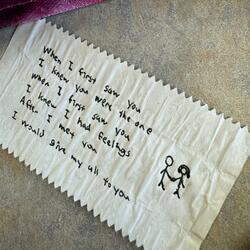 When I first saw you
I knew you were the one
when I first saw you
I knew I had feelings
After I met you
I would give my all to you